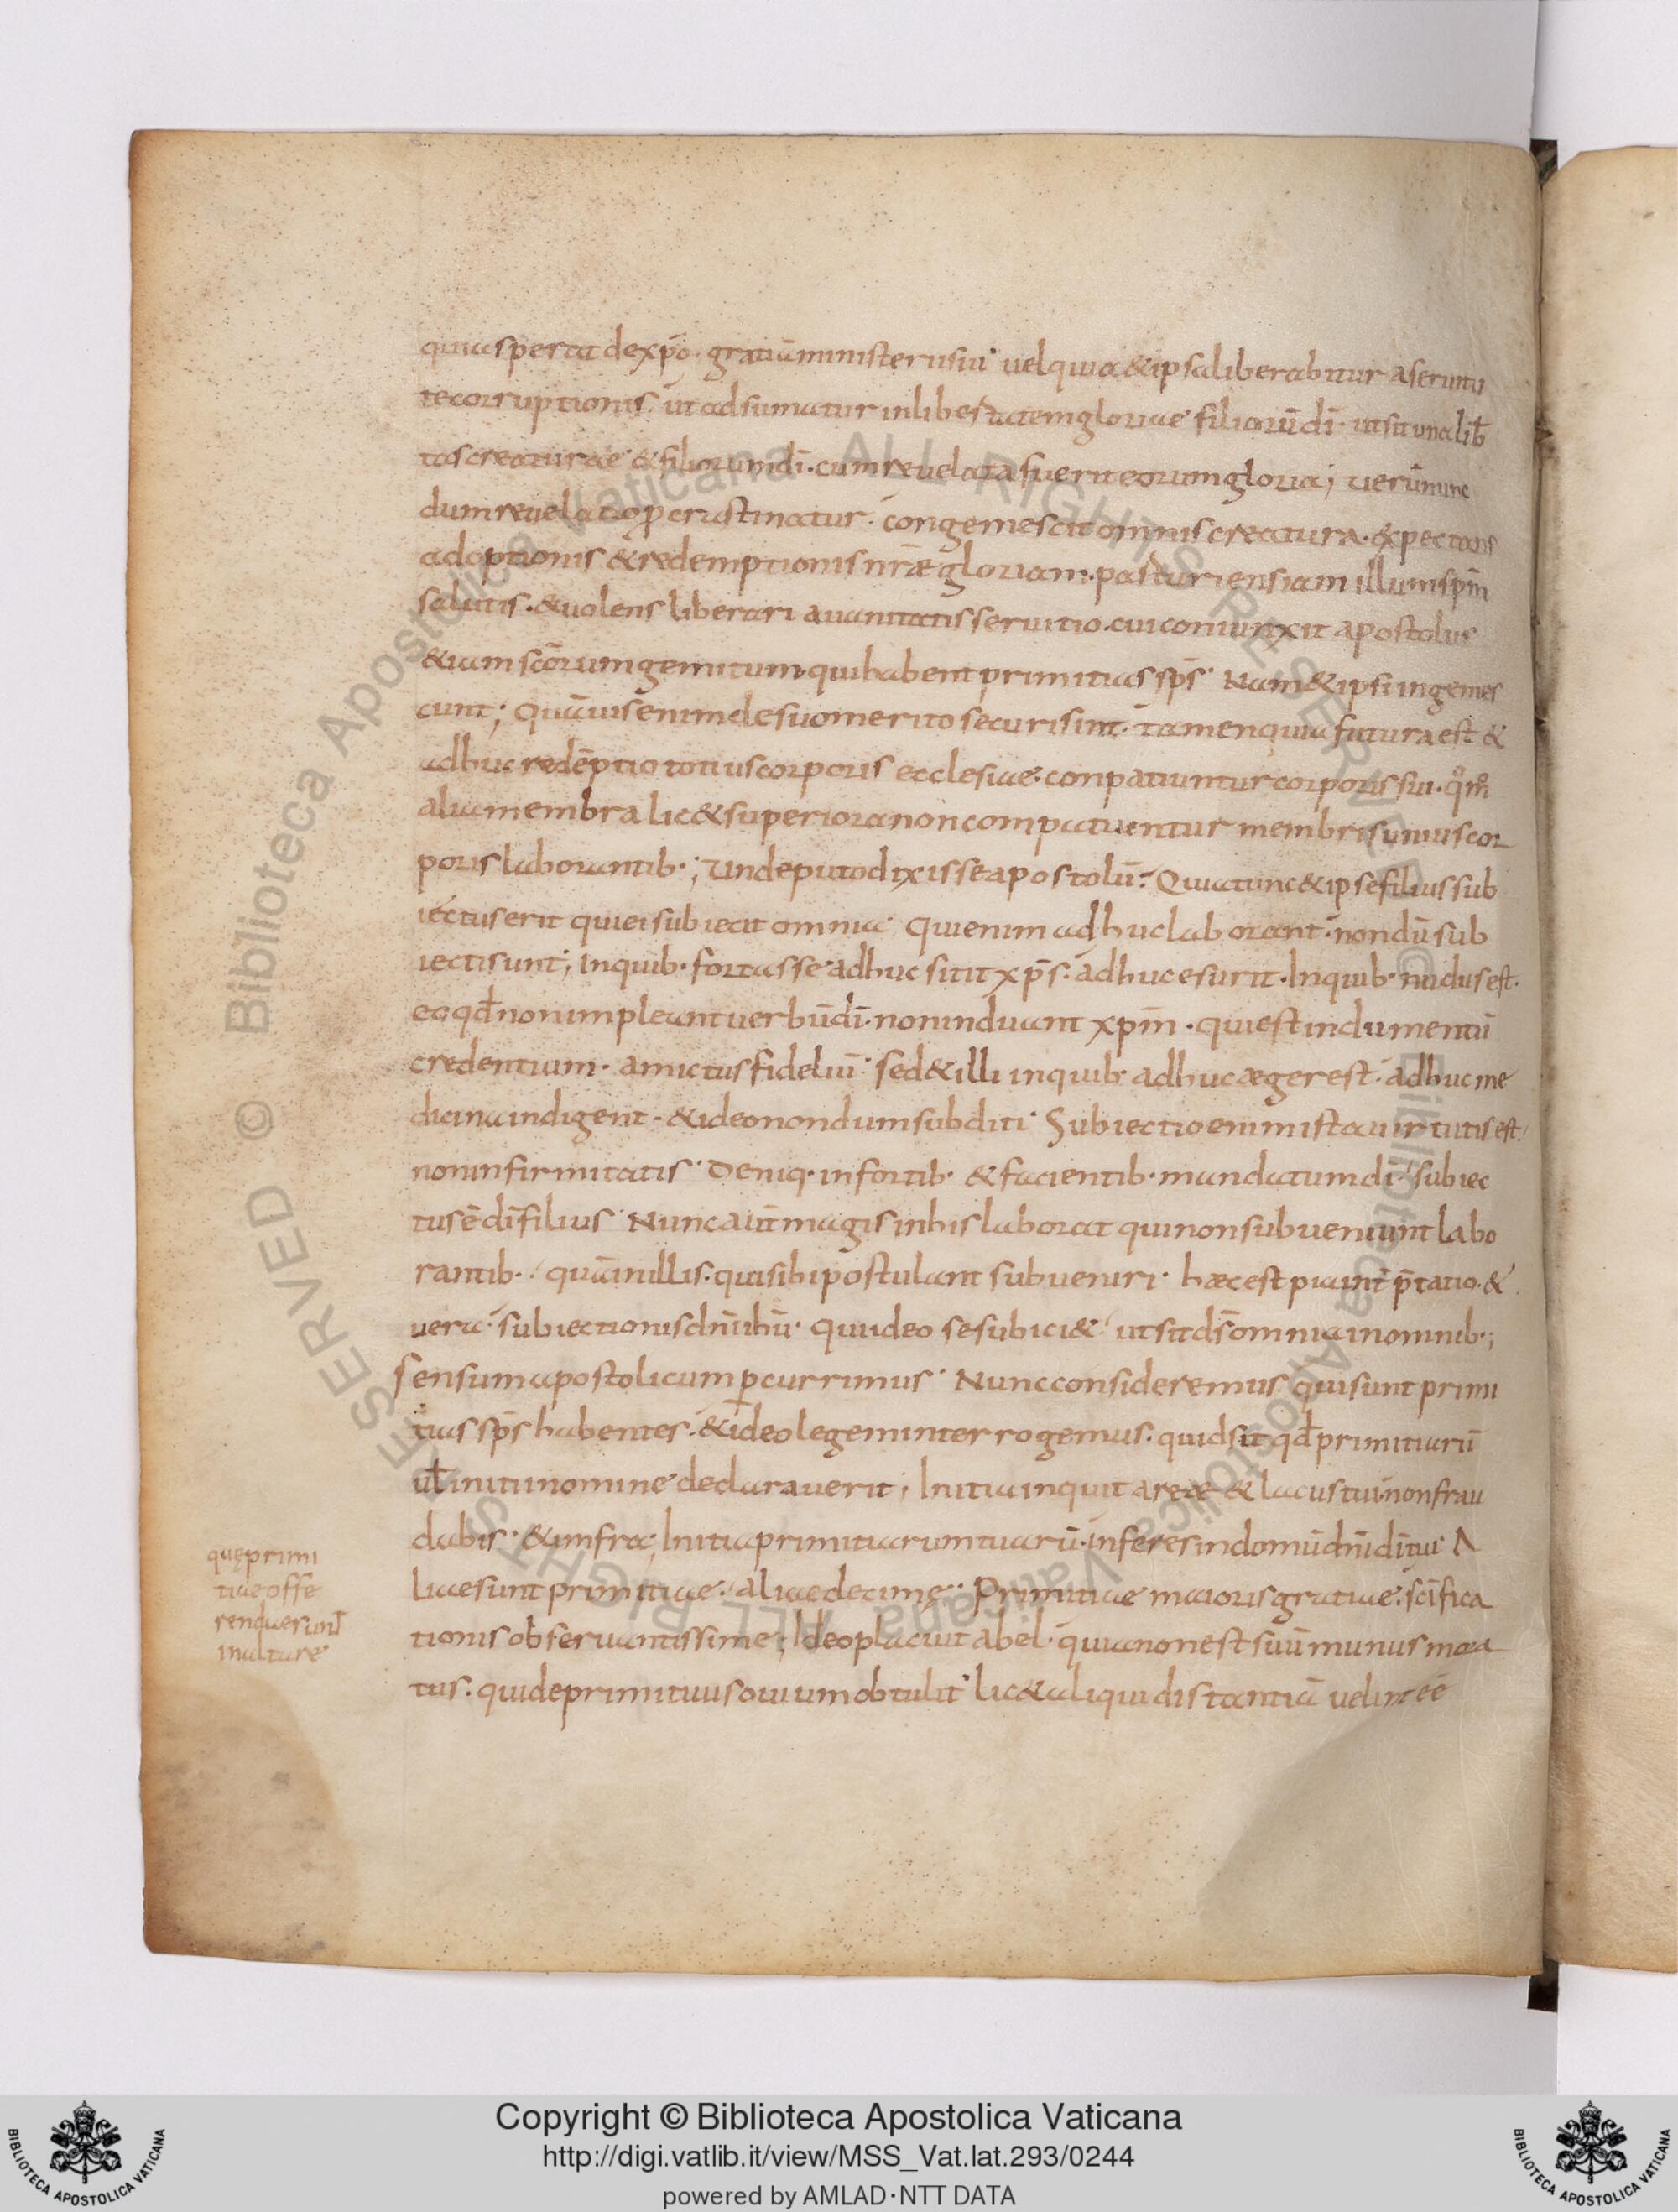 quia sperat de xp̄o. gratiā ministerii sui. vel quia & ipsa liberabitur a seruitu
te corruptionis. ut adsumatur in libertatem gloriae filiorū dī. ut sit una lib̄
tas creaturae & filiorum dī. cum revelata fuerit eorum gloria; verū nunc
dum revelatio ꝓcrastinatur. congemescit omnis creatura. expectans
adoptionis & redemptionis nr̄ae gloriam. pasturiens iam illum sp̄m
salutis. & volens liberari a vanitatis servitio. cui coniunxit apostolus
&iam scōrum gemitum. qui habent primitias sp̄s. Nam & ipsi ingemes
cunt; Quāvis enim de suo merito securi sint. tamen quia futura est &
adhuc redēptio totius corporis ecclesiae. conpatiuntur corporis sui. qm̄
alia membra lic& superiora non compatientur membris unius cor
poris laborantib·; Unde puto dixisse apostolū. Quia tunc & ipse filius sub
iectus erit qui ei subiecit omnia. Qui enim adhuc laborant. nondū sub
iecti sunt; In quib· fortasse adhuc sitit xp̄s. adhuc esurit. In quib· nudus est.
eo qd̄ non impleant verbū dī. non induant xp̄m. qui est indumentū
credentium. amictus fideliū. sed & illi in quib· adhuc æger est. adhuc me
dicina indigent. & ideo nondum subditi. Subiectio enim ista virtutis est.
non infirmitatis. Deniq· in fortib· & facientib· mandatum dī. subiec
tus ē dī filius. Nunc aut̄ magis in his laborat qui non subveniunt labo
rantib·. quā in illis. qui sibi postulant subveniri. hæc est pia int̄p̄tatio. &
vera. subiectionis dn̄i ihū. qui ideo se subici&. ut sit ds̄ omnia in omnib·;
Sensum apostolicum ꝑcurrimus. Nunc consideremus qui sunt primi
tias sp̄s habentes. & ideo legem interrogemus. quid sit qd̄ primitiarū
ul̄ initii nomine declaraverit; Initia inquit areae & lacus tui. non frau
dabis. & infra; Initia primitiarum tuarū. inferes in domū dn̄i dī tui. A
liae sunt primitiae. aliae decimę. Primitiae maioris gratiae. scīfica
tionis observantissime; Ideo placuit abel. quia non est suū munus mora
tus. qui de primitiuis ovium obtulit. lic& aliqui distantiā velint eē
quę primi
tiae offe
rendae sunt
in altare